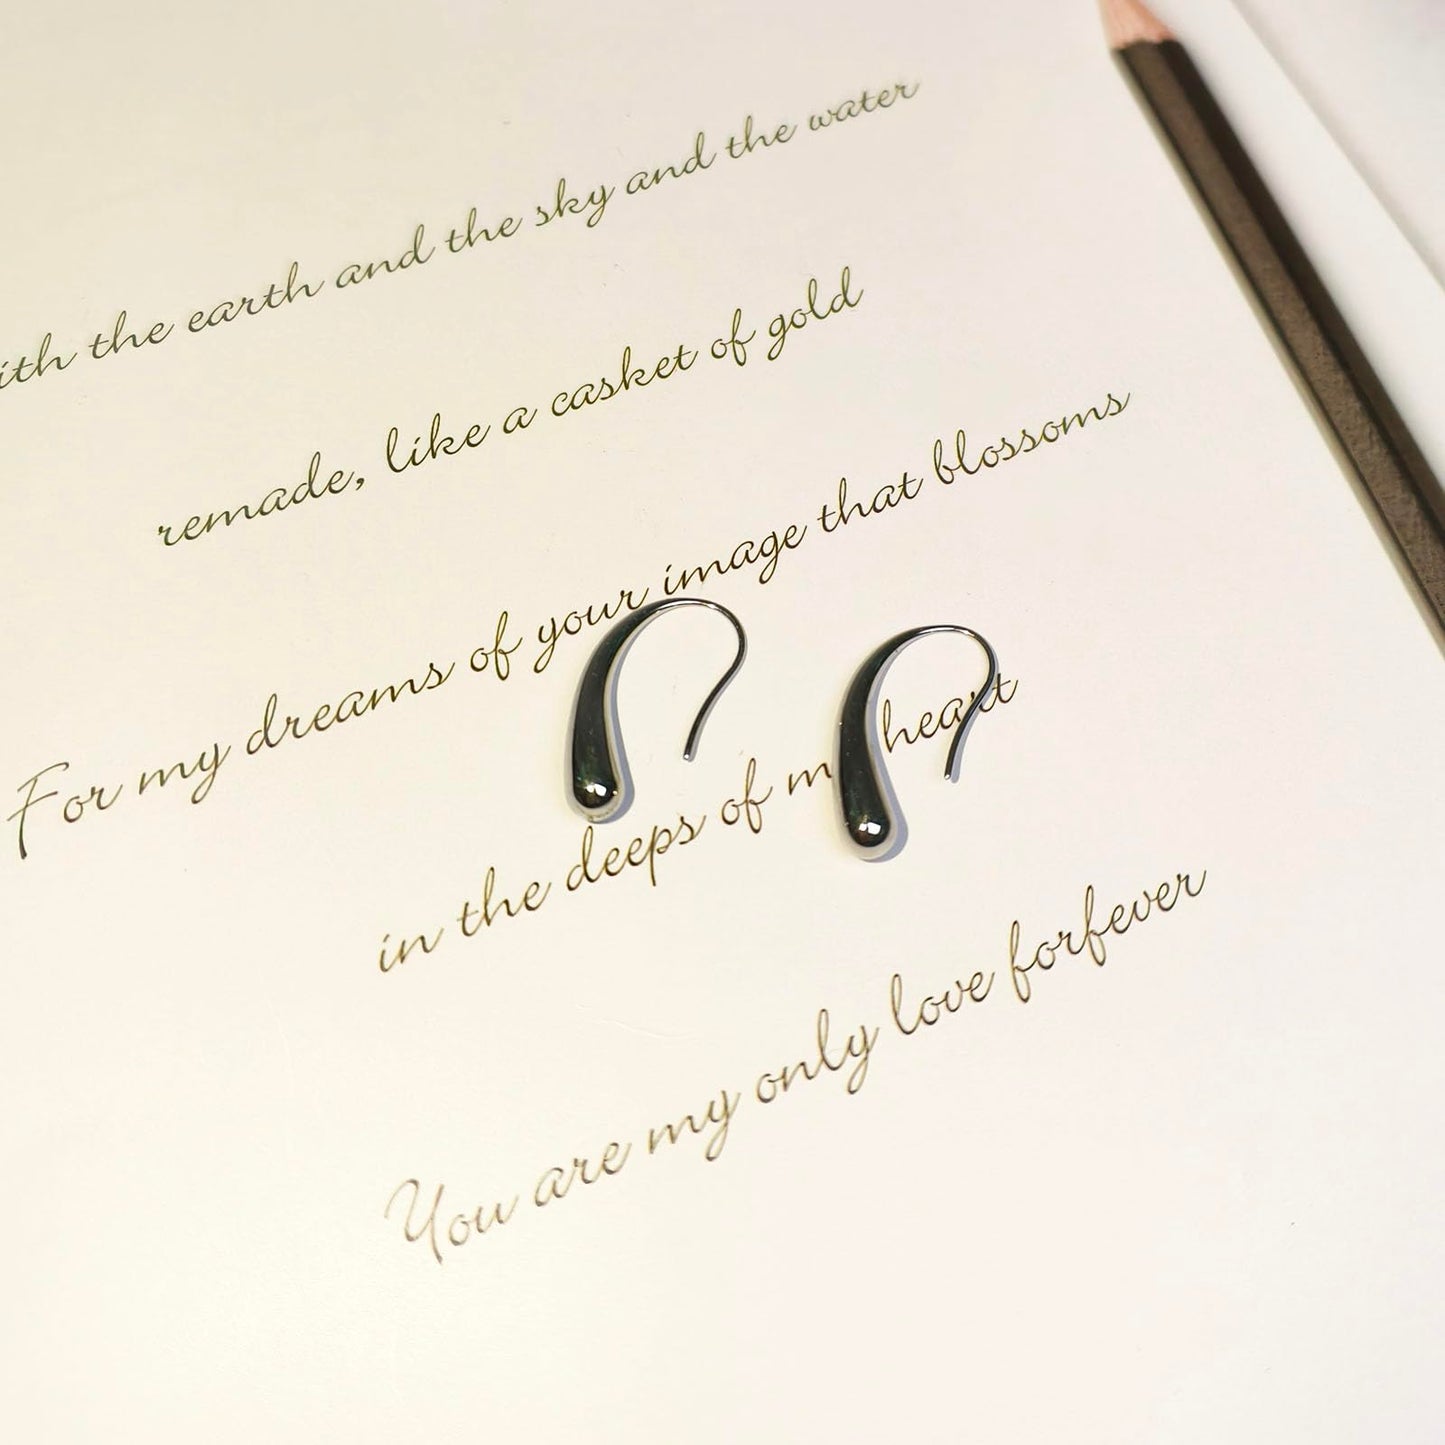 ith the earth and the sky and the water
remade, like a casket of gold
For my dreams of your image that blossoms
in the deeps of m heart
You are my only love forfever